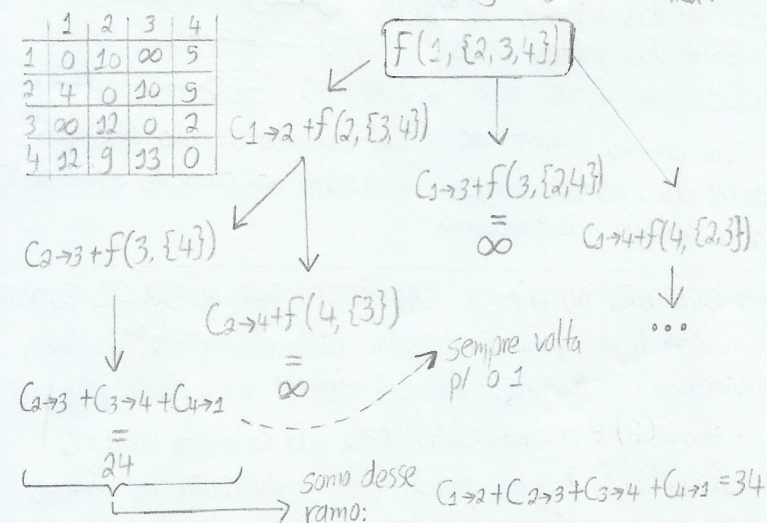 1 2 3 4
1 0 10 ∞ 5
2 4 0 10 9
3 ∞ 12 0 2
4 12 9 13 0
f(1, {2,3,4})
C1→2 + f(2, {3,4})
C1→3 + f(3, {2,4})
=
∞
C1→4 + f(4, {2,3})
...
C2→3 + f(3, {4})
C2→4 + f(4, {3})
=
∞
C2→3 + C3→4 + C4→1
=
24
sempre volta
p/ o 1
soma desse
ramo:
C1→2 + C2→3 + C3→4 + C4→1 = 34